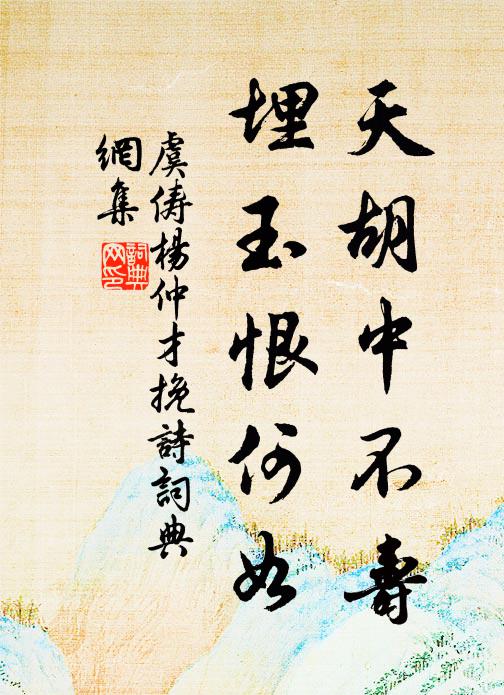 天胡中不壽
埋玉恨何如
虞儔楊仲才挽詩詞典
網集
詞典
网印